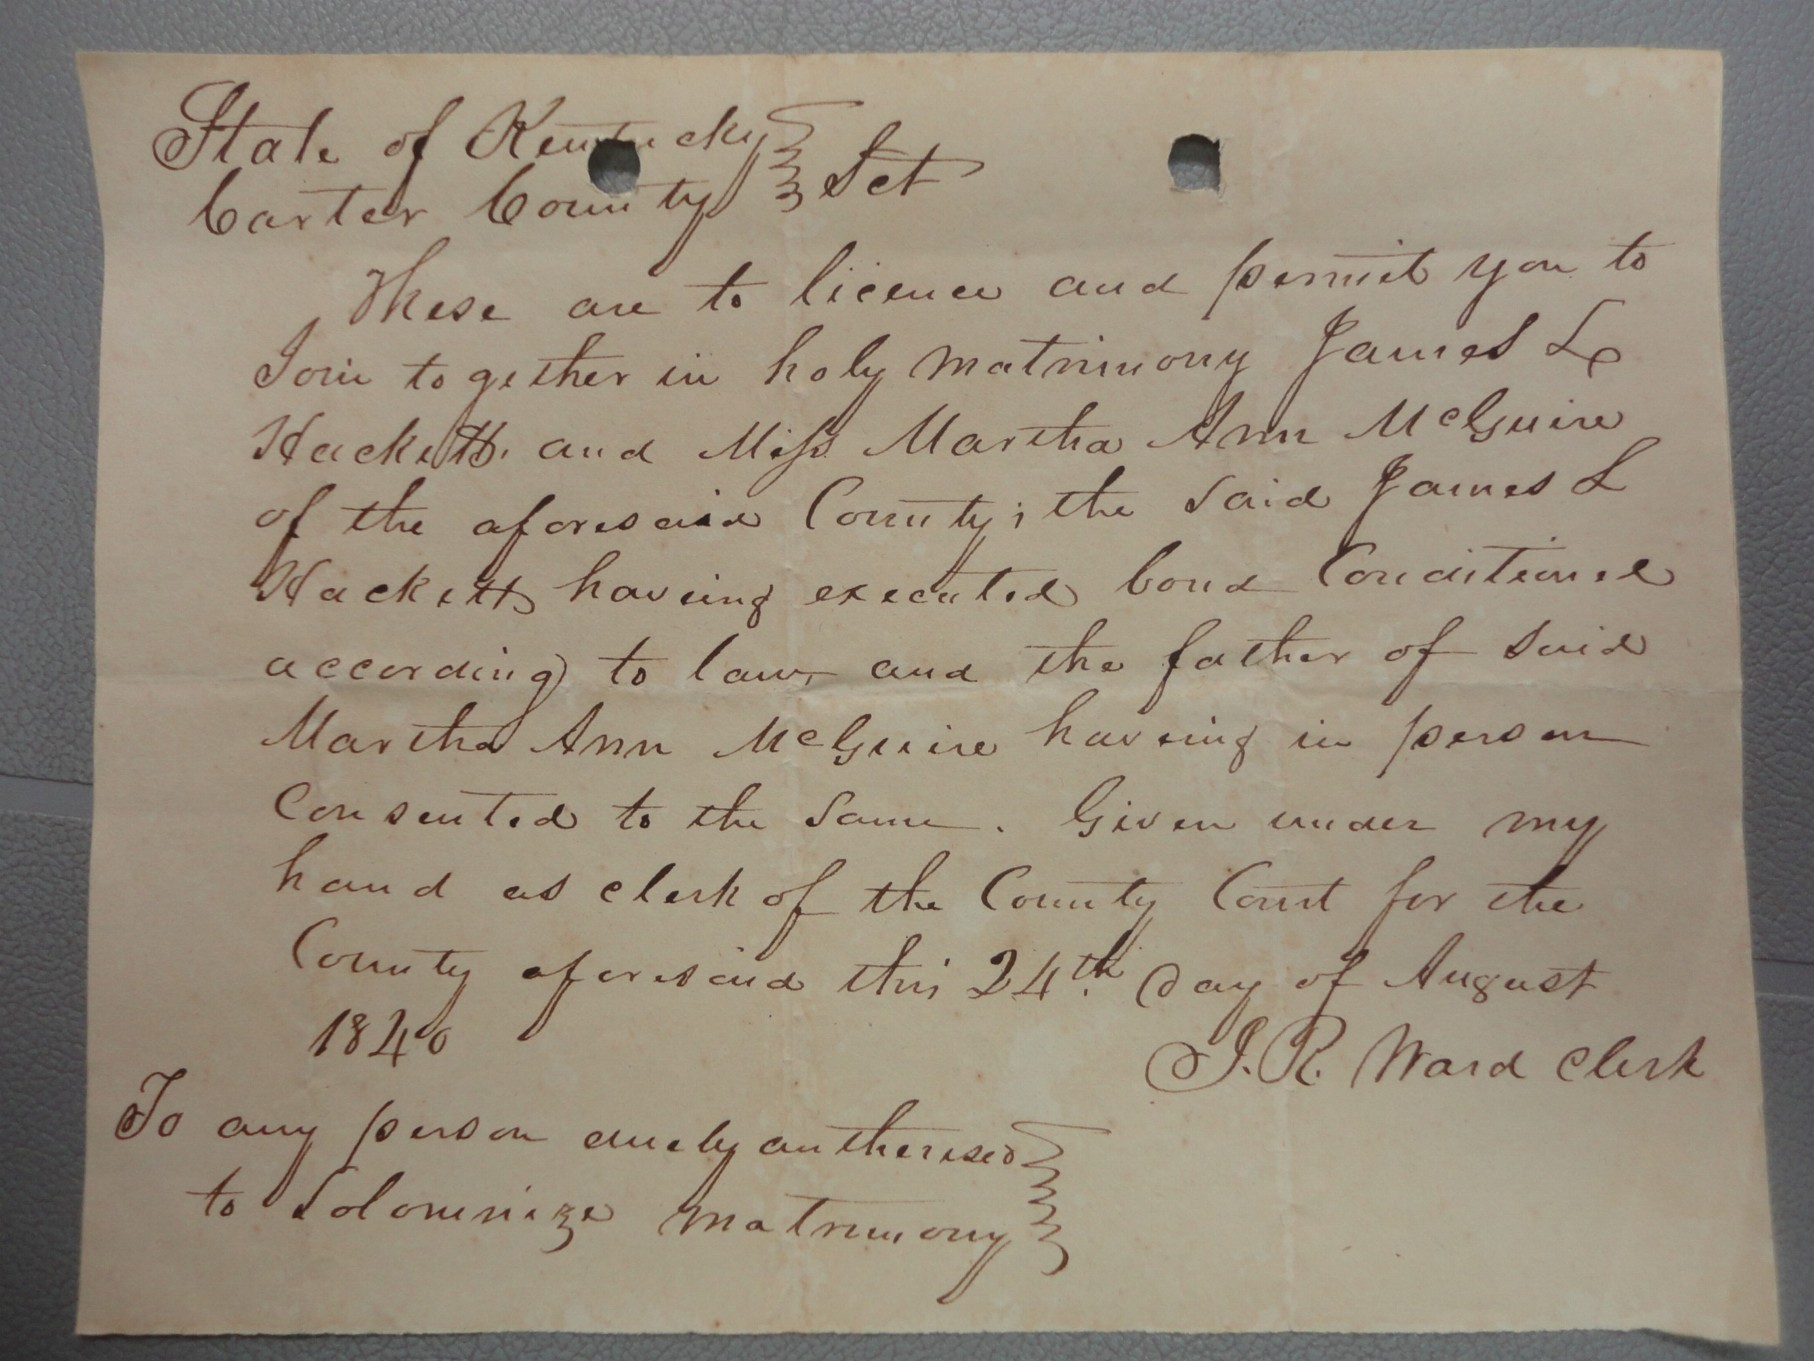 State of Kentucky
Carter County } Sct
These are to licence and permit you to
Join together in holy matrimony James L
Hackett. and Miss Martha Ann McGuire
of the aforesaid County; the said James L
Hackett having executed bond Conditioned
according to law, and the father of said
Martha Ann McGuire having in person
Consented to the same. Given under my
hand as clerk of the County Court for the
County aforesaid this 24th day of August
1840
J. R. Ward clerk
To any person duely autherised
to Solominize matrimony